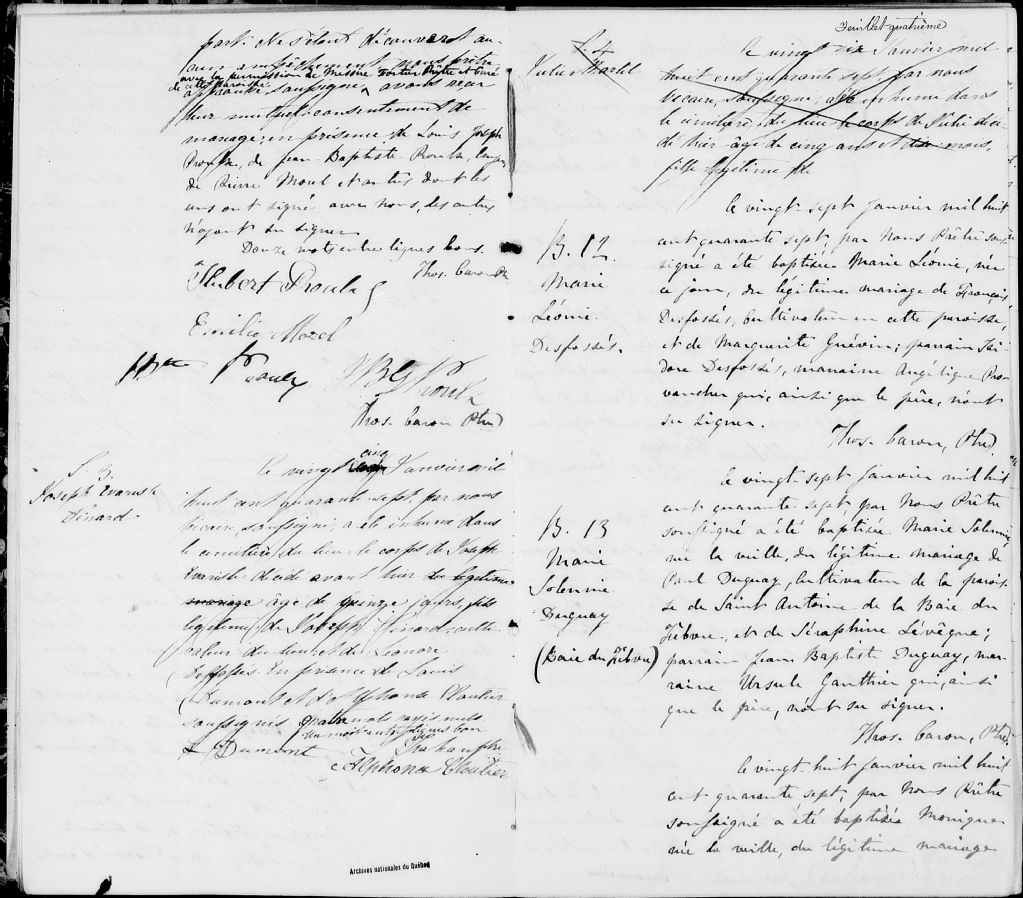 part. Ne s'étant découvert au-
cun empêchement, nous prêtre
avec la permission de Messire Prêtre et Curé
de cette paroisse
soussigné, avons reçu
leur mutuel consentement de
mariage, en présence de Louis Joseph
Proulx, de Jean Baptiste Proulx,
de Pierre Morel et autres dont les
uns ont signé avec nous, les autres
n'ayant su signer.
Douze mots entre lignes bons.
Thos. Caron Ptre
Hubert Proulx
Emilie Morel
JBte Proulx JBG Proulx
Thos. Caron Ptre
S. 3.
Joseph Evariste
Pinard.
Le vingt cinq Janvier mil
huit cent quarante sept, par nous
vicaire, soussigné, a été inhumé dans
le cimetière du lieu le corps de Joseph
Evariste décédé avant hier du légitime
mariage âgé de quinze jours, fils
légitime de Joseph Pinard, culti-
vateur du lieu et de Léonore
Desfossés. En présence de Louis
Dumont et d'Alphonse Cloutier
soussignés. quatre mots rayés nuls
un mot entre lignes bon
L. Dumont
Alphonse Cloutier
Archives nationales du Québec
Feuillet quatrième
S. 4
Julie Martel
Le vingt six Janvier mil
huit cent quarante sept, par nous
vicaire, soussigné, a été inhumé dans
le cimetière, du lieu le corps de Julie décé-
dé hier âgé de cinq ans et dix mois,
fille légitime de
B. 12.
Marie
Léonie.
Desfossés.
Le vingt-sept Janvier mil huit
cent quarante sept, par Nous Prêtre sous-
signé a été baptisée Marie Léonie, née
ce jour, du légitime mariage de François
Desfossés, Cultivateur en cette paroisse,
et de Marguerite Guévin; parrain Isi-
dore Desfossés, marraine Angélique Pro-
vancher qui, ainsi que le père, n'ont
su signer.
Thos. Caron, Ptre
B. 13
Marie
Solennie
Duguay
(Baie du Febvre)
Le vingt-sept Janvier mil huit
cent quarante sept, par Nous Prêtre
soussigné a été baptisée Marie Solennie
née la veille, du légitime mariage de
Paul Duguay, Cultivateur de la parois-
se de Saint Antoine de la Baie du
Febvre, et de Séraphine Lévêque;
parrain Jean Baptiste Duguay, mar-
raine Ursule Gauthier qui, ainsi
que le père, n'ont su signer.
Thos. Caron, Ptre
Le vingt-huit Janvier mil huit
cent quarante sept, par Nous Prêtre
soussigné a été baptisée Monique
née la veille, du légitime mariage